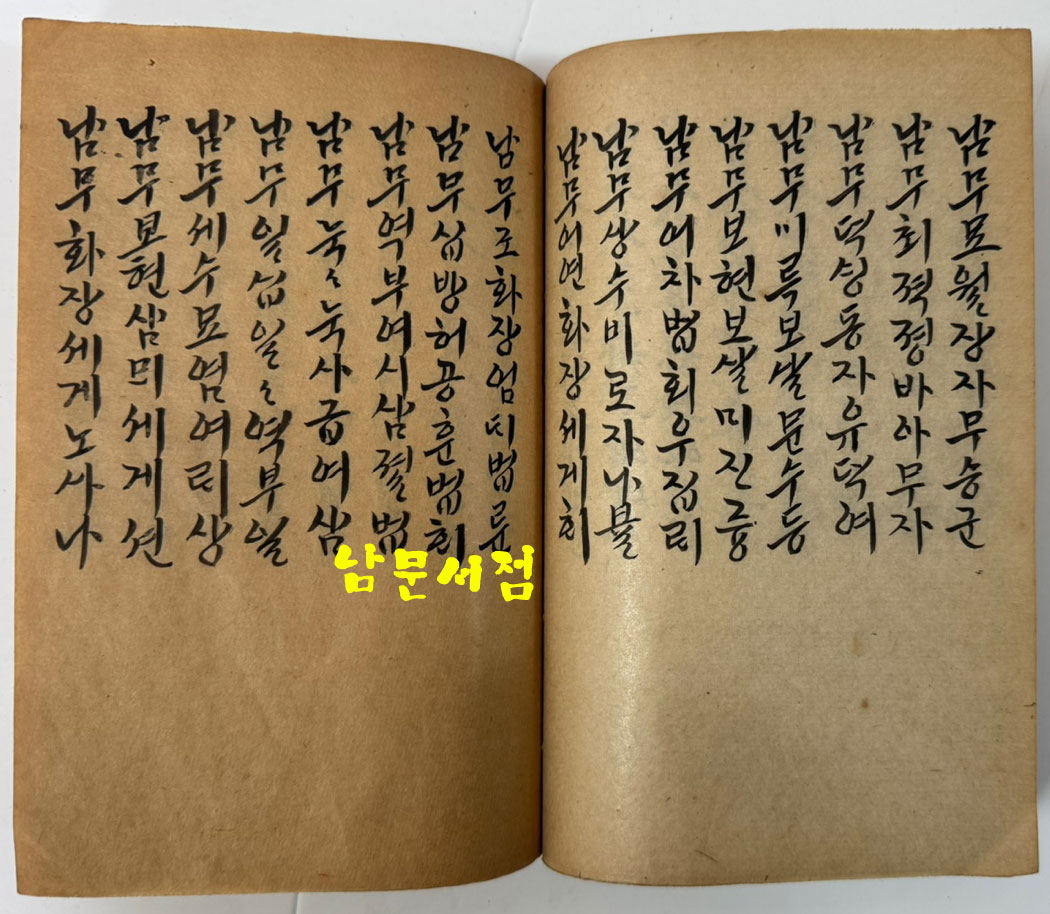 남무묘월장자무승군
남무최젹졍바아무자
남무덕셩동자유덕여
남무미륵보살문수등
남무보현보살미진즁
남무어차법회우집래
남무상수비로자나뷸
남무어연화장세게회
남무조화장엄디법륜
남무십방허공훈법회
남무역부여시삼졀법
남무눅〻눅사급여삼
남무일십일〻역부일
남무세수묘염여래상
남무보현삼믜세게션
남무화장세게노사나
남문서점